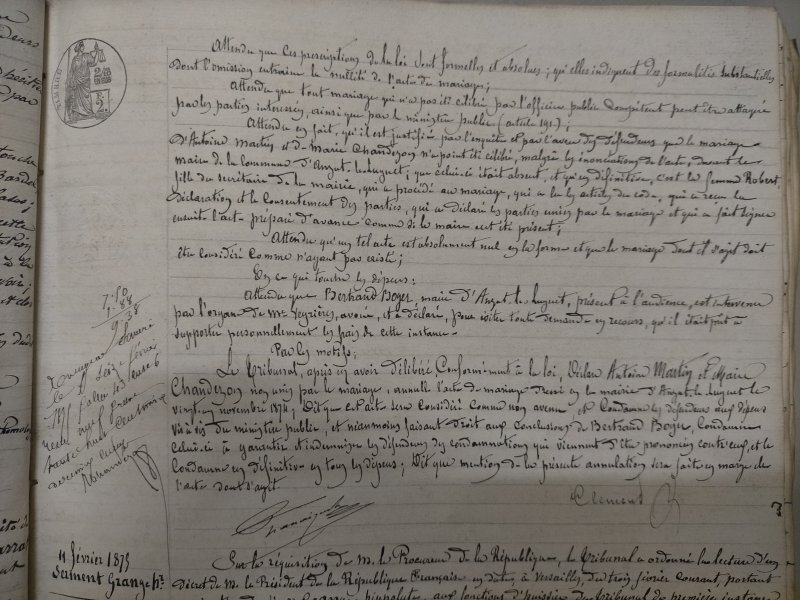 Attendu que ces prescriptions de la loi sont formelles et absolues; qu'elles indiquent des formalités substantielles
dont l'omission entraîne la nullité de l'acte de mariage;
Attendu que tout mariage qui n'a pas été célébré par l'officier public compétent peut être attaqué
par les parties intéressées, ainsi que par le ministère public (article 191);
Attendu en fait, qu'il est justifié par l'enquête et par l'aveu des défendeurs que le mariage
d'Antoine Martin et de Marie Chandezon n'a point été célébré, malgré les énonciations de l'acte, devant le
maire de la commune d'Anzat-le-Luguet; que celui-ci était absent, et qu'en définitive, c'est la femme Robert
fille du secrétaire de la mairie, qui a procédé au mariage, qui a lu les articles du code, qui a reçu la
déclaration et le consentement des parties, qui a déclaré les parties unies par le mariage et qui a fait signer
ensuite l'acte préparé d'avance comme si le maire eut été présent;
Attendu qu'un tel acte est absolument nul en la forme et que le mariage dont il s'agit doit
être considéré comme n'ayant pas existé;
En ce qui touche les dépens:
Attendu que Bertrand Boyer, maire d'Anzat-le-Luguet, présent à l'audience, est intervenu
par l'organe de Me Veyrières, avoué, et a déclaré, pour éviter toute demande en recours, qu'il était prêt à
supporter personnellement les frais de cette instance.
Par les motifs,
Le Tribunal, après en avoir délibéré conformément à la loi, déclare Antoine Martin et Marie
Chandezon non unis par le mariage, annulle l'acte de mariage dressé en la mairie d'Anzat-le-Luguet le
vingt-un novembre 1874; Dit que cet acte sera considéré comme non avenu et condamne les défendeurs aux dépens
vis à vis du ministère public, et néanmoins faisant droit aux conclusions de Bertrand Boyer, condamne
celui-ci à garantir et indemniser les défendeurs des condamnations qui viennent d'être prononcées contre eux, et le
condamne en définitive en tous les dépens; Dit que mention de la présente annulation sera faite en marge de
l'acte dont s'agit
Clément
7.50
1.88
9.38
11 février 1875
Serment Grange hte.
Sur la réquisition de M. le Procureur de la République, le Tribunal a ordonné la lecture d'un
décret de M. le Président de la République Française en date, à Versailles, du trois février courant, portant